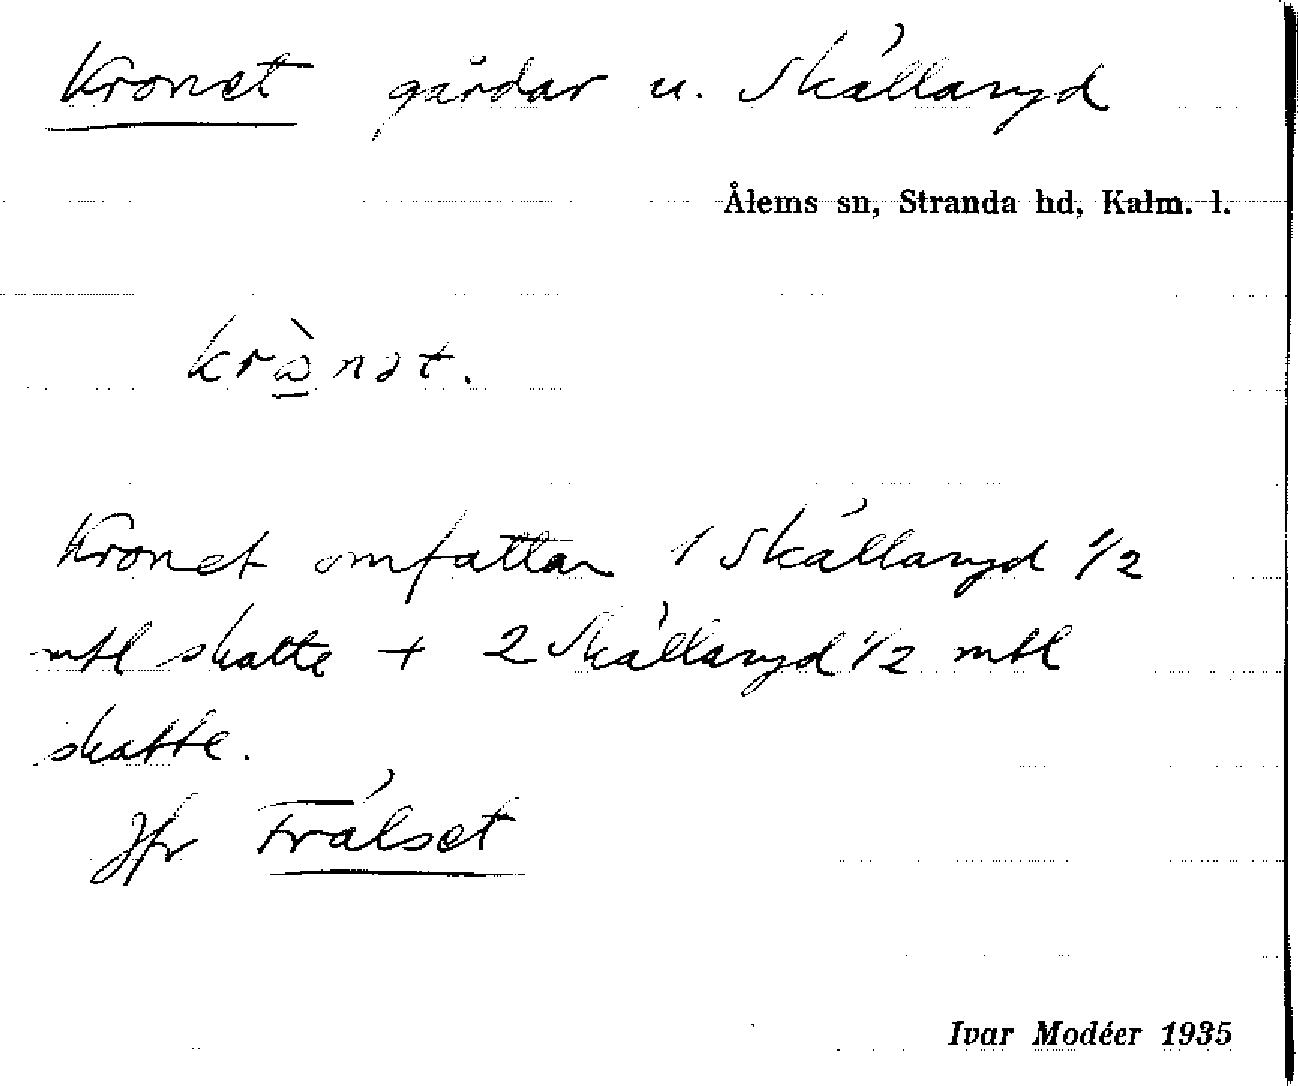 Kronet gårdar u. Skällaryd
Ålems sn, Stranda hd, Kalm. l.
krὼnət.
Kronet omfattar 1 Skällaryd 1/2
mtl skatte + 2 Skällaryd 1/2 mtl
skatte.
Jfr Frälset
Ivar Modéer 1935